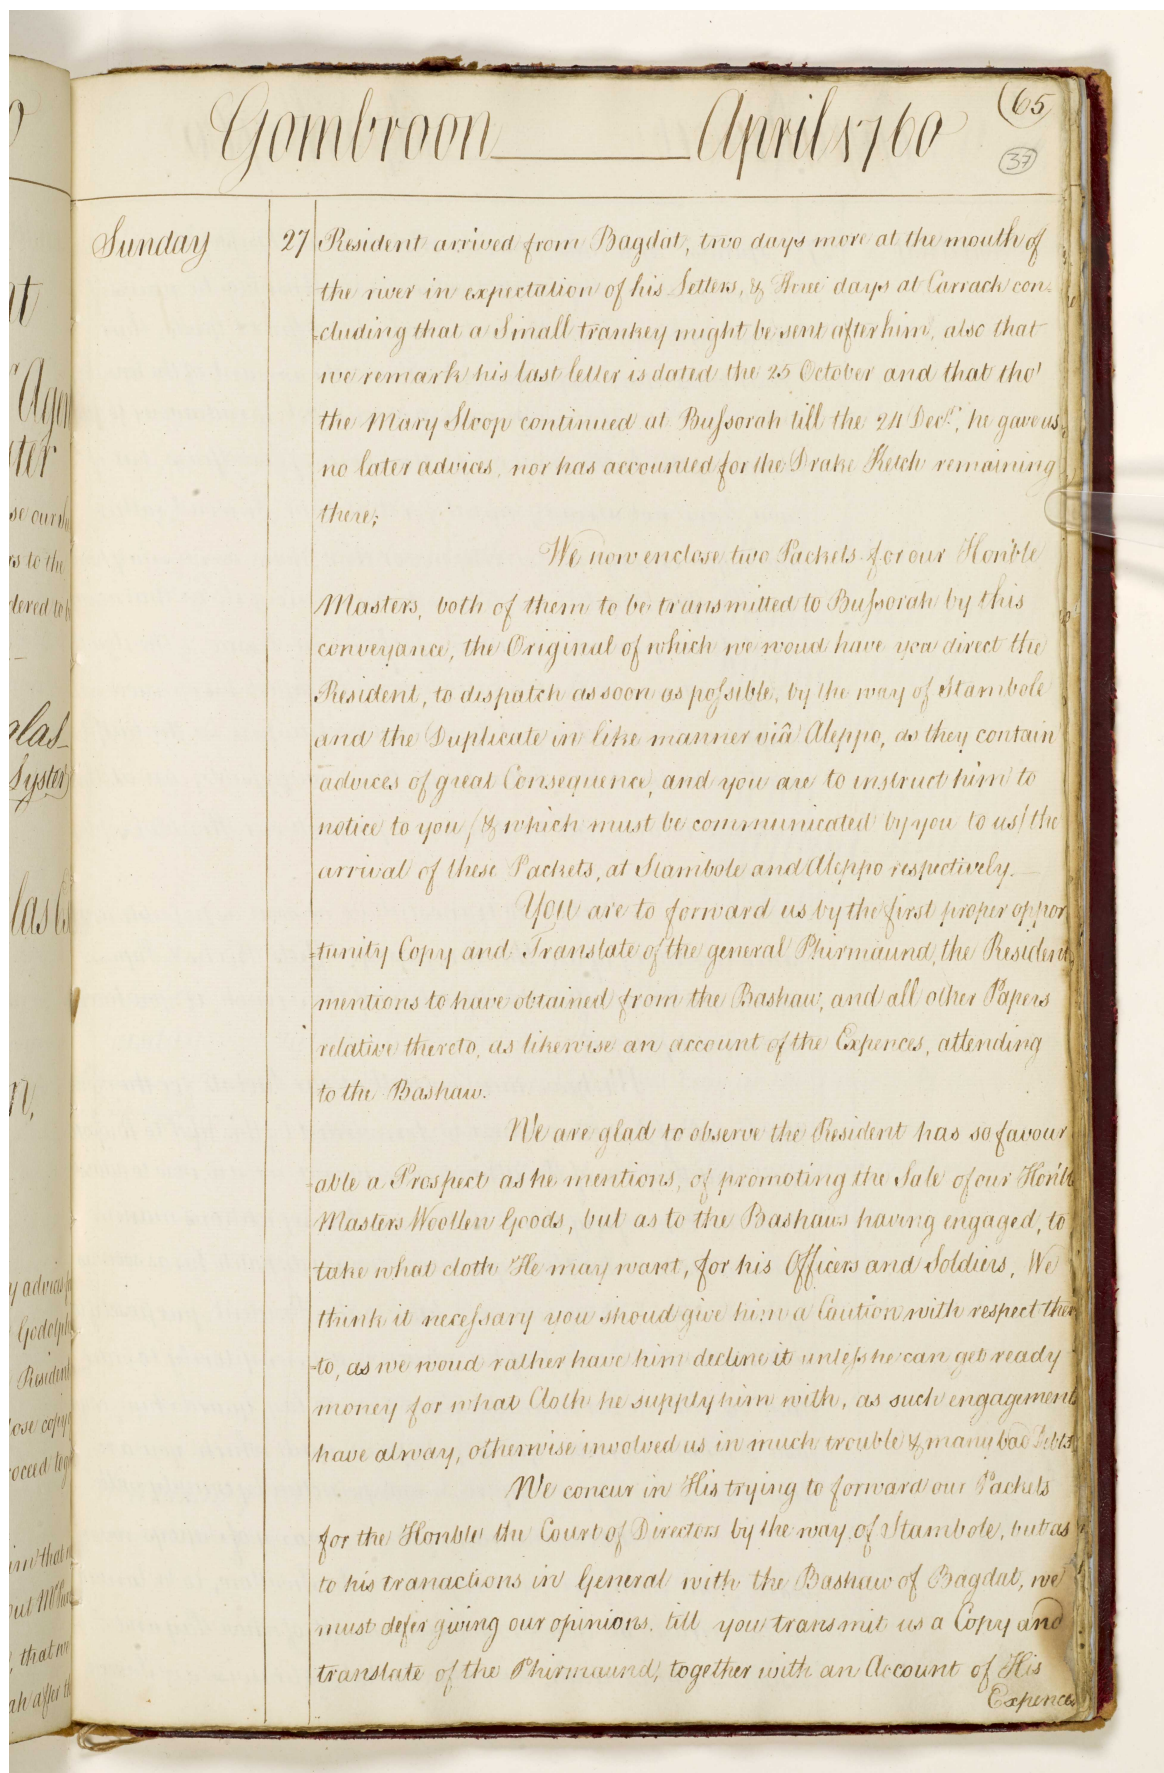 Gombroon April 1760
65
37
Sunday 27 Resident arrived from Bagdat, two days more at the mouth of
the river in expectation of his Letters, & Three days at Carrack con-
-cluding that a Small trankey might be sent after him, also that
we remark his last letter is dated the 25 October and that tho'
the Mary Sloop continued at Bussorah till the 24 Decr., he gave us
no later advices, nor has accounted for the Drake Ketch remaining
there;
We now enclose two Packets for our Honble
Masters, both of them to be transmitted to Bussorah by this
conveyance, the Original of which we woud have you direct the
Resident, to dispatch as soon as possible, by the way of Stambole
and the Duplicate in like manner viâ Aleppo, as they contain
advices of great Consequence, and you are to instruct him to
notice to you (& which must be communicated by you to us) the
arrival of these Packets, at Stambole and Aleppo respectively.
You are to forward us by the first proper oppor
-tunity Copy and Translate of the general Phirmaund, the Resident
mentions to have obtained from the Bashaw, and all other Papers
relative thereto, as likewise an account of the Expences, attending
to the Bashaw.
We are glad to observe the Resident has so favour
-able a Prospect as he mentions, of promoting the Sale of our Honble
Masters Woollen Goods, but as to the Bashaws having engaged, to
take what cloth He may want, for his Officers and Soldiers, We
think it necessary you shoud give him a Caution with respect there
-to, as we woud rather have him decline it unless he can get ready
money for what Cloth he supply him with, as such engagements
have alway, otherwise involved us in much trouble & many bad Debts.
We concur in His trying to forward our Packets
for the Honble the Court of Directors by the way of Stambole, but as
to his tranactions in General with the Bashaw of Bagdat, we
must defer giving our opinions, till you transmit us a Copy and
translate of the Phirmaund, together with an Account of His
Expences